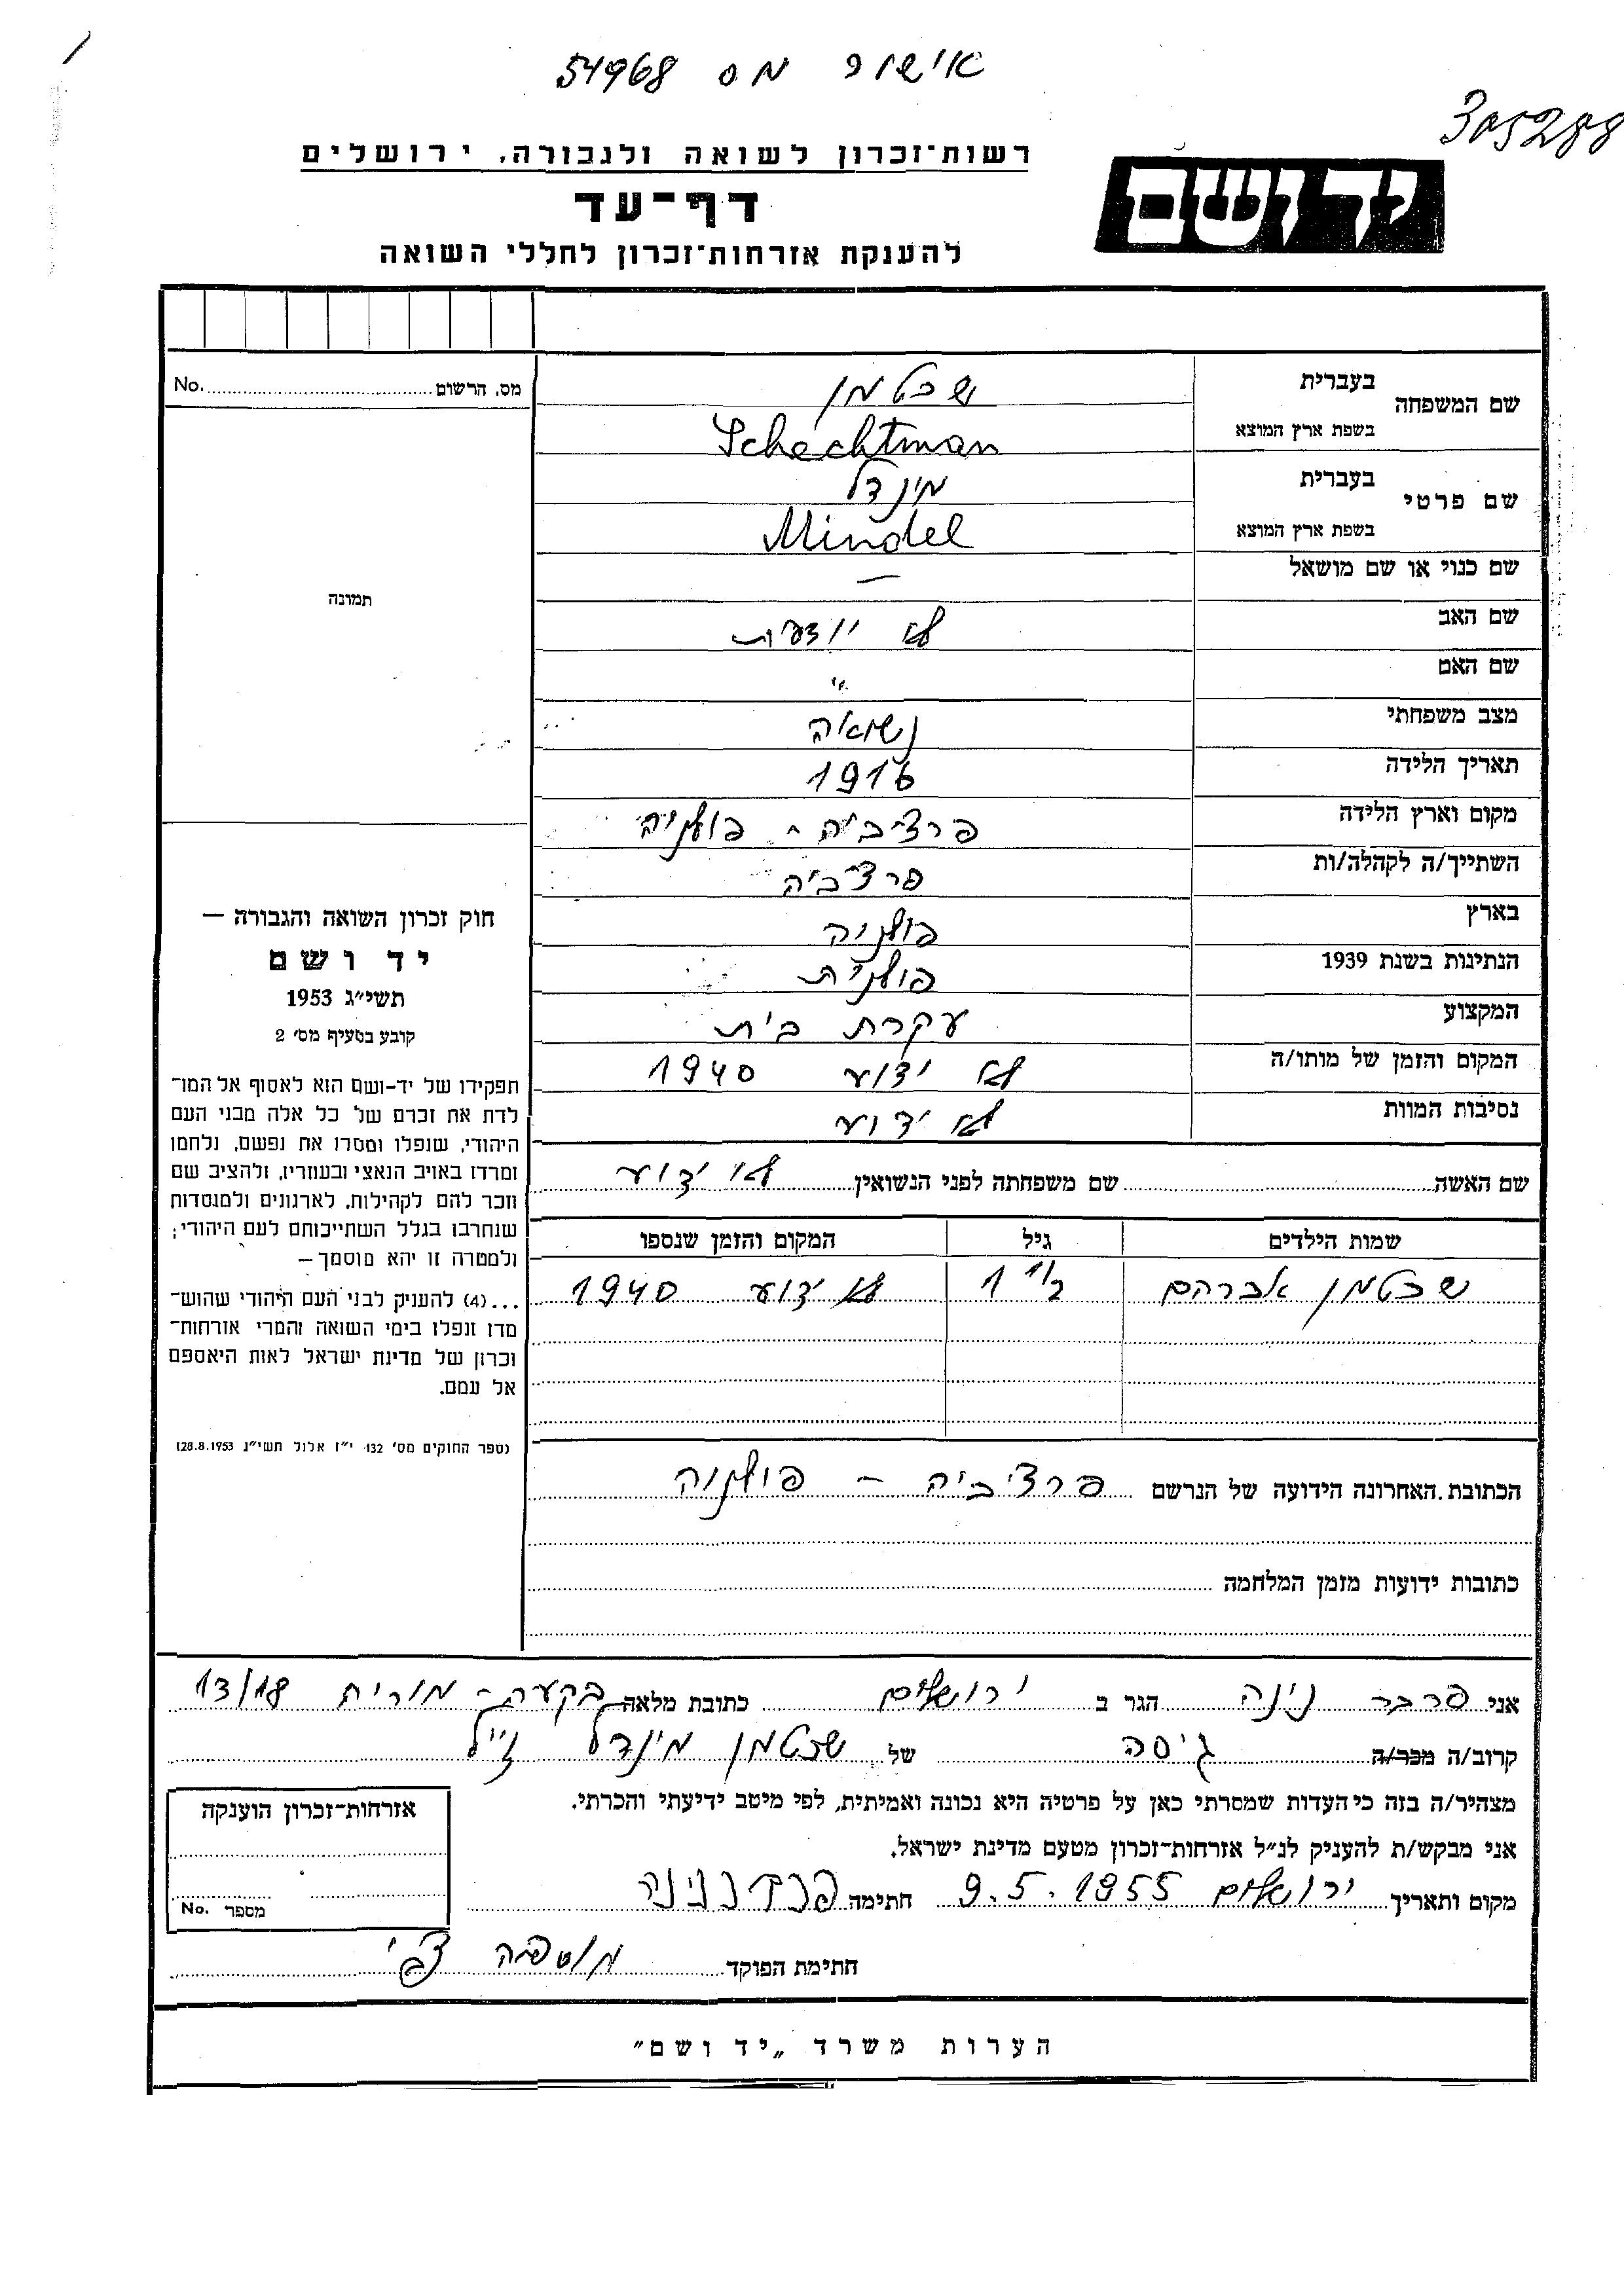 אישור מס 54968
305288
רשות־זכרון לשואה ולגבורה, ירושלים
יד ושם
דף־עד
להענקת אזרחות־זכרון לחללי השואה
מס. הרשום No.
תמונה
חוק זכרון השואה והגבורה —
יד ושם
תשי״ג 1953
קובע בסעיף מס׳ 2
תפקידו של יד-ושם הוא לאסוף אל המו־
לדת את זכרם של כל אלה מבני העם
היהודי, שנפלו ומסרו את נפשם, נלחמו
ומרדו באויב הנאצי ובעוזריו, ולהציב שם
וזכר להם לקהילות, לארגונים ולמוסדות
שנחרבו בגלל השתייכותם לעם היהודי;
ולמטרה זו יהא מוסמך —
...(4) להעניק לבני העם היהודי שהוש־
מדו ונפלו בימי השואה והמרי אזרחות־
זכרון של מדינת ישראל לאות היאספם
אל עמם.
(ספר החוקים מס׳ 132 י״ז אלול תשי״ג 28.8.1953)
שם המשפחה בעברית שכטמן
בשפת ארץ המוצא Schechtman
שם פרטי בעברית מינדל
בשפת ארץ המוצא Mindel
שם כנוי או שם מושאל —
שם האב לא יודעת
שם האם "
מצב משפחתי נשואה
תאריך הלידה 1916
מקום וארץ הלידה פרצ׳ביה - פולניה
השתייך/ה לקהלה/ות פרצ׳ביה
בארץ פולניה
הנתינות בשנת 1939 פולנית
המקצוע עקרת בית
המקום והזמן של מותו/ה לא ידוע 1940
נסיבות המוות לא ידוע
שם האשה שם משפחתה לפני הנשואין לא ידוע
שמות הילדים גיל המקום והזמן שנספו
שכטמן אברהם 1 1/2 לא ידוע 1940
הכתובת האחרונה הידועה של הנרשם פרצ׳ביה - פולניה
כתובות ידועות מזמן המלחמה
אני פרבר נינה הגר ב ירושלים כתובת מלאה בקעה - מורית 13/18
קרוב/ה מכר/ה גיסה של שכטמן מינדל ז״ל
מצהיר/ה בזה כי העדות שמסרתי כאן על פרטיה היא נכונה ואמיתית, לפי מיטב ידיעתי והכרתי.
אני מבקש/ת להעניק לנ״ל אזרחות־זכרון מטעם מדינת ישראל.
מקום ותאריך ירושלים 9.5.1955 חתימה נינה
חתימת הפוקד צבי
אזרחות־זכרון הוענקה
מספר No.
הערות משרד „יד ושם״